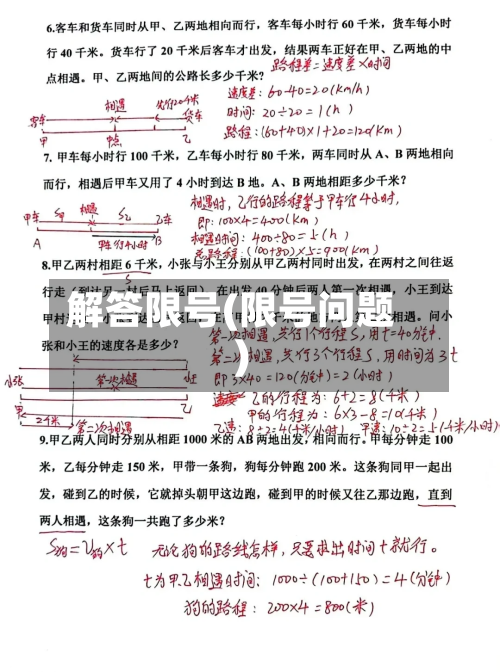 6.客车和货车同时从甲、乙两地相向而行，客车每小时行 60 千米，货车每小时
行 40 千米。货车行了 20 千米后客车才出发，结果两车正好在甲、乙两地的中
点相遇。甲、乙两地间的公路长多少千米？
路程差=速度差×时间
速度差：60-40=20(km/h)
时间：20÷20=1(h)
路程：(60+40)×1+20=120(km)
相遇
先行20千米
客车
货车
甲
中点
乙
7. 甲车每小时行 100 千米，乙车每小时行 80 千米，两车同时从 A、B 两地相向
而行，相遇后甲车又用了 4 小时到达 B 地。A、B 两地相距多少千米？
相遇时，乙行的路程等于甲车行4小时，
即：100×4=400(km)
相遇时间：400÷80=5(h)
总路程：(100+80)×5=900(km)
甲车
相遇
S乙
乙车
A
甲车行4小时
B
8.甲乙两村相距 6 千米，小张与小王分别从甲乙两村同时出发，在两村之间往返
行走（到达另一村后马上返回），在出发 40 分钟后两人第一次相遇，小王到达
甲村
相遇。问小
张和小王的速度各是多少？
解答限号(限号问题
)
第一次相遇，共行1个行程S，用t=40分钟.
第二次相遇，共行3个行程S，用时间为3t
即3×40=120(分钟)=2(小时)
乙的行程为：6+2=8(千米)
甲的行程为：6×3-8=10(千米)
乙速：8÷2=4(千米/小时) 甲速：10÷2=5(千米/小时)
小张
第一次相遇
小王
甲
乙
2千米
第二次相遇
9.甲乙两人同时分别从相距 1000 米的 AB 两地出发，相向而行。甲每分钟走 100
米，乙每分钟走 150 米，甲带一条狗，狗每分钟跑 200 米。这条狗同甲一起出
发，碰到乙的时候，它就掉头朝甲这边跑，碰到甲的时候又往乙那边跑，直到
两人相遇，这条狗一共跑了多少米？
S狗=V狗×t
无论狗的路线怎样，只要求出时间t就行。
t为甲乙相遇时间：1000÷(100+150)=4(分钟)
狗的路程：200×4=800(米)